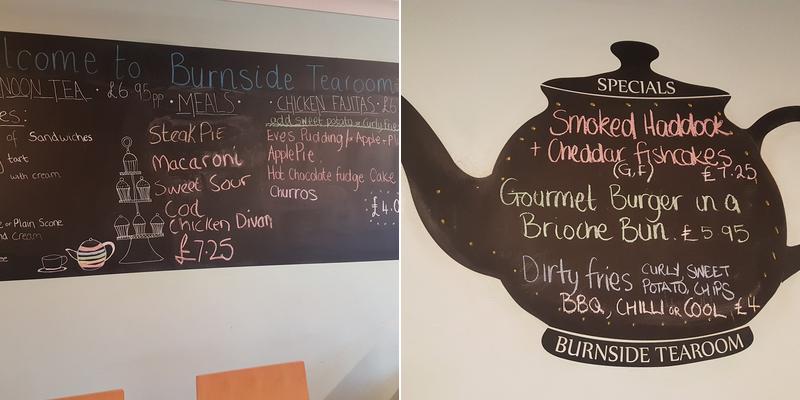 lcome to Burnside Tearoom
NOON TEA · £6.95pp
es:
of Sandwiches
tart
with cream
e or Plain Scone
nd cream
· MEALS ·
Steak Pie
Macaroni
Sweet Sour
Cod
Chicken Divan
£7.25
CHICKEN FAJITAS · £6
add sweet potato or curly frie
Eves Pudding/
Apple Pie
Hot Chocolate fudge Cake
Churros
£4.0
SPECIALS
Smoked Haddock
+ Cheddar fishcakes
(G.F) £7.25
Gourmet Burger in a
Brioche Bun. £5.95
Dirty fries CURLY, SWEET
POTATO, CHIPS
BBQ, CHILLI OR COOL £4
BURNSIDE TEAROOM